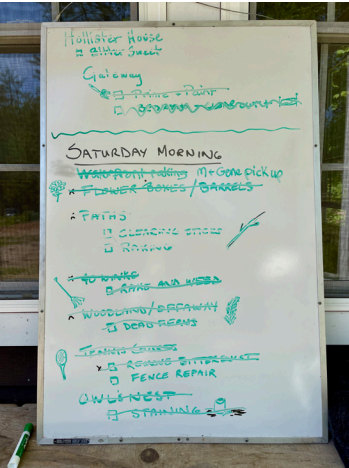 Hollister House
Bitter Sweet
Gateway
Prime + Paint
SATURDAY MORNING
Waterfront raking M+Gene pick up
FLOWER BOXES / BARRELS
PATHS
CLEARING STICKS
RAKING
RAKE AND WEED
WOODLAND/
DEAD FERNS
TENNIS COURTS
BITTERSWEET
FENCE REPAIR
OWL'S NEST
STAINING